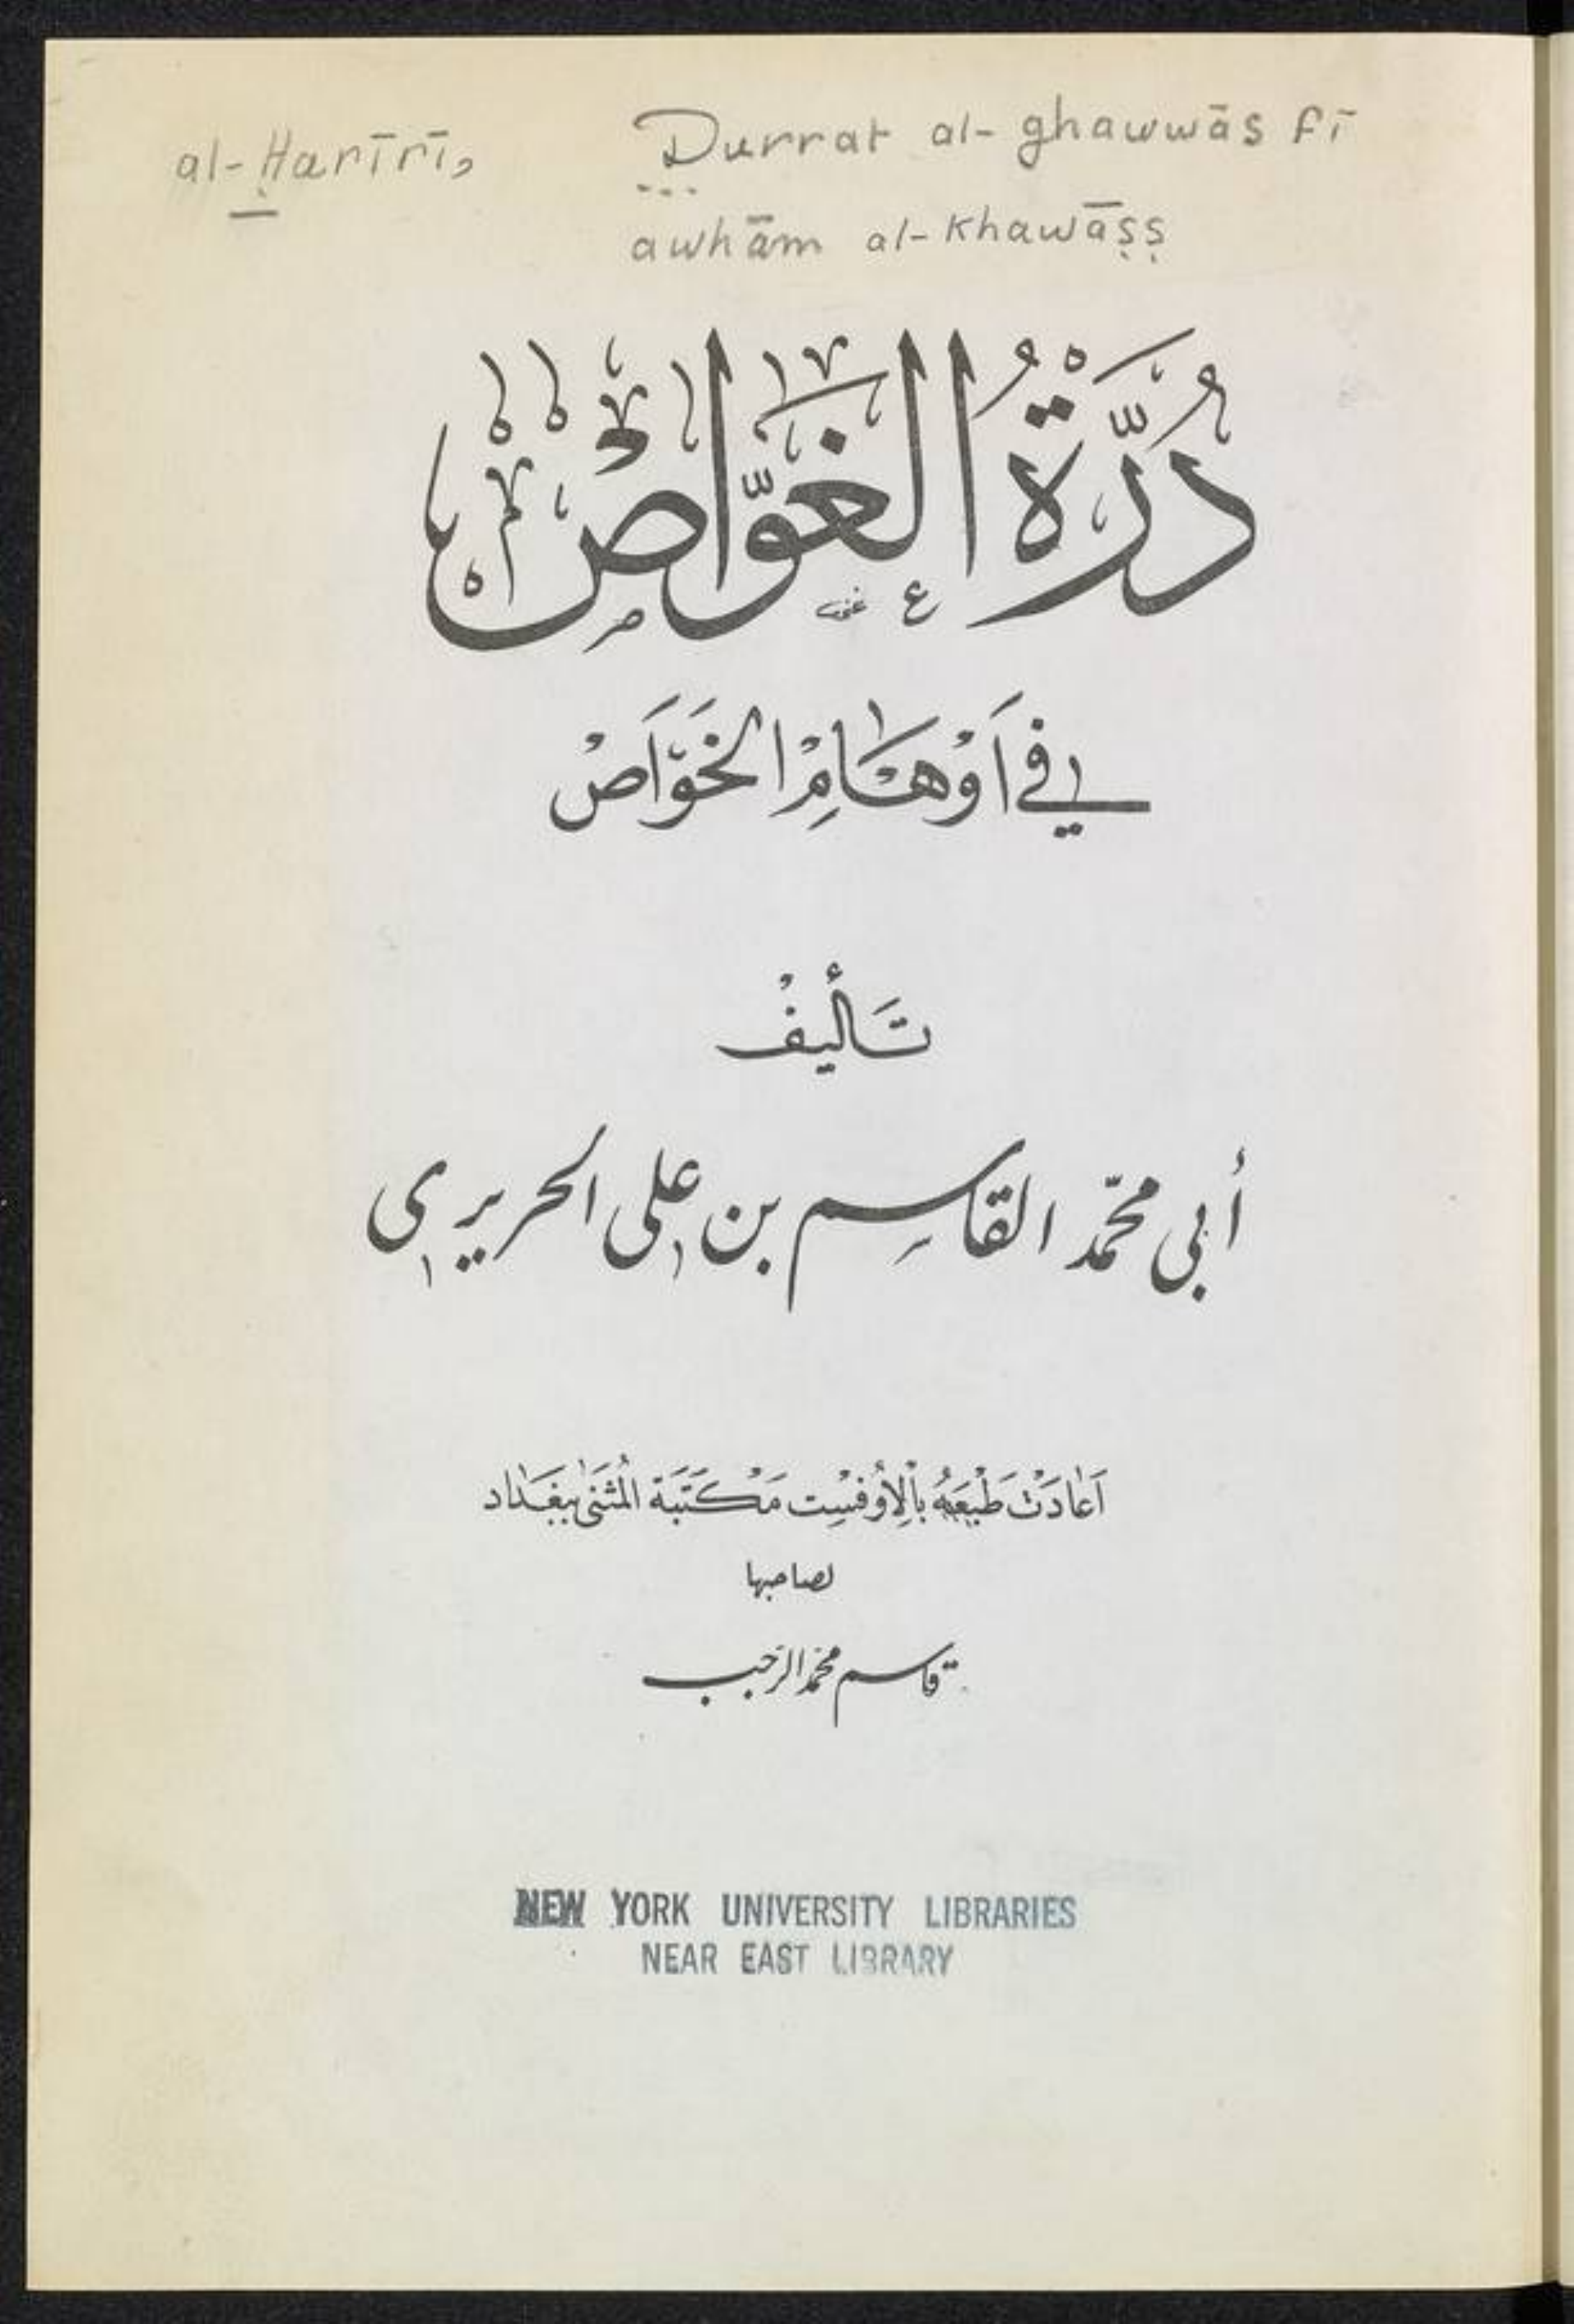 al-Ḥarīrī, Durrat al-ghawwās fī
awhām al-khawāṣṣ
دُرَّةُ الغَوَّاصْ
في اَوْهَامِ الخَوَاصْ
تَأليفْ
أبي محمّد القاسِم بن على الحريرى
اَعَادَتْ طَبْعَهُ بِالأُوفْسِت مَكْتَبَة المُثَنىٰ ببَغدَاد
لصاحبها
قاسم محمد الرجب
NEW YORK UNIVERSITY LIBRARIES
NEAR EAST LIBRARY